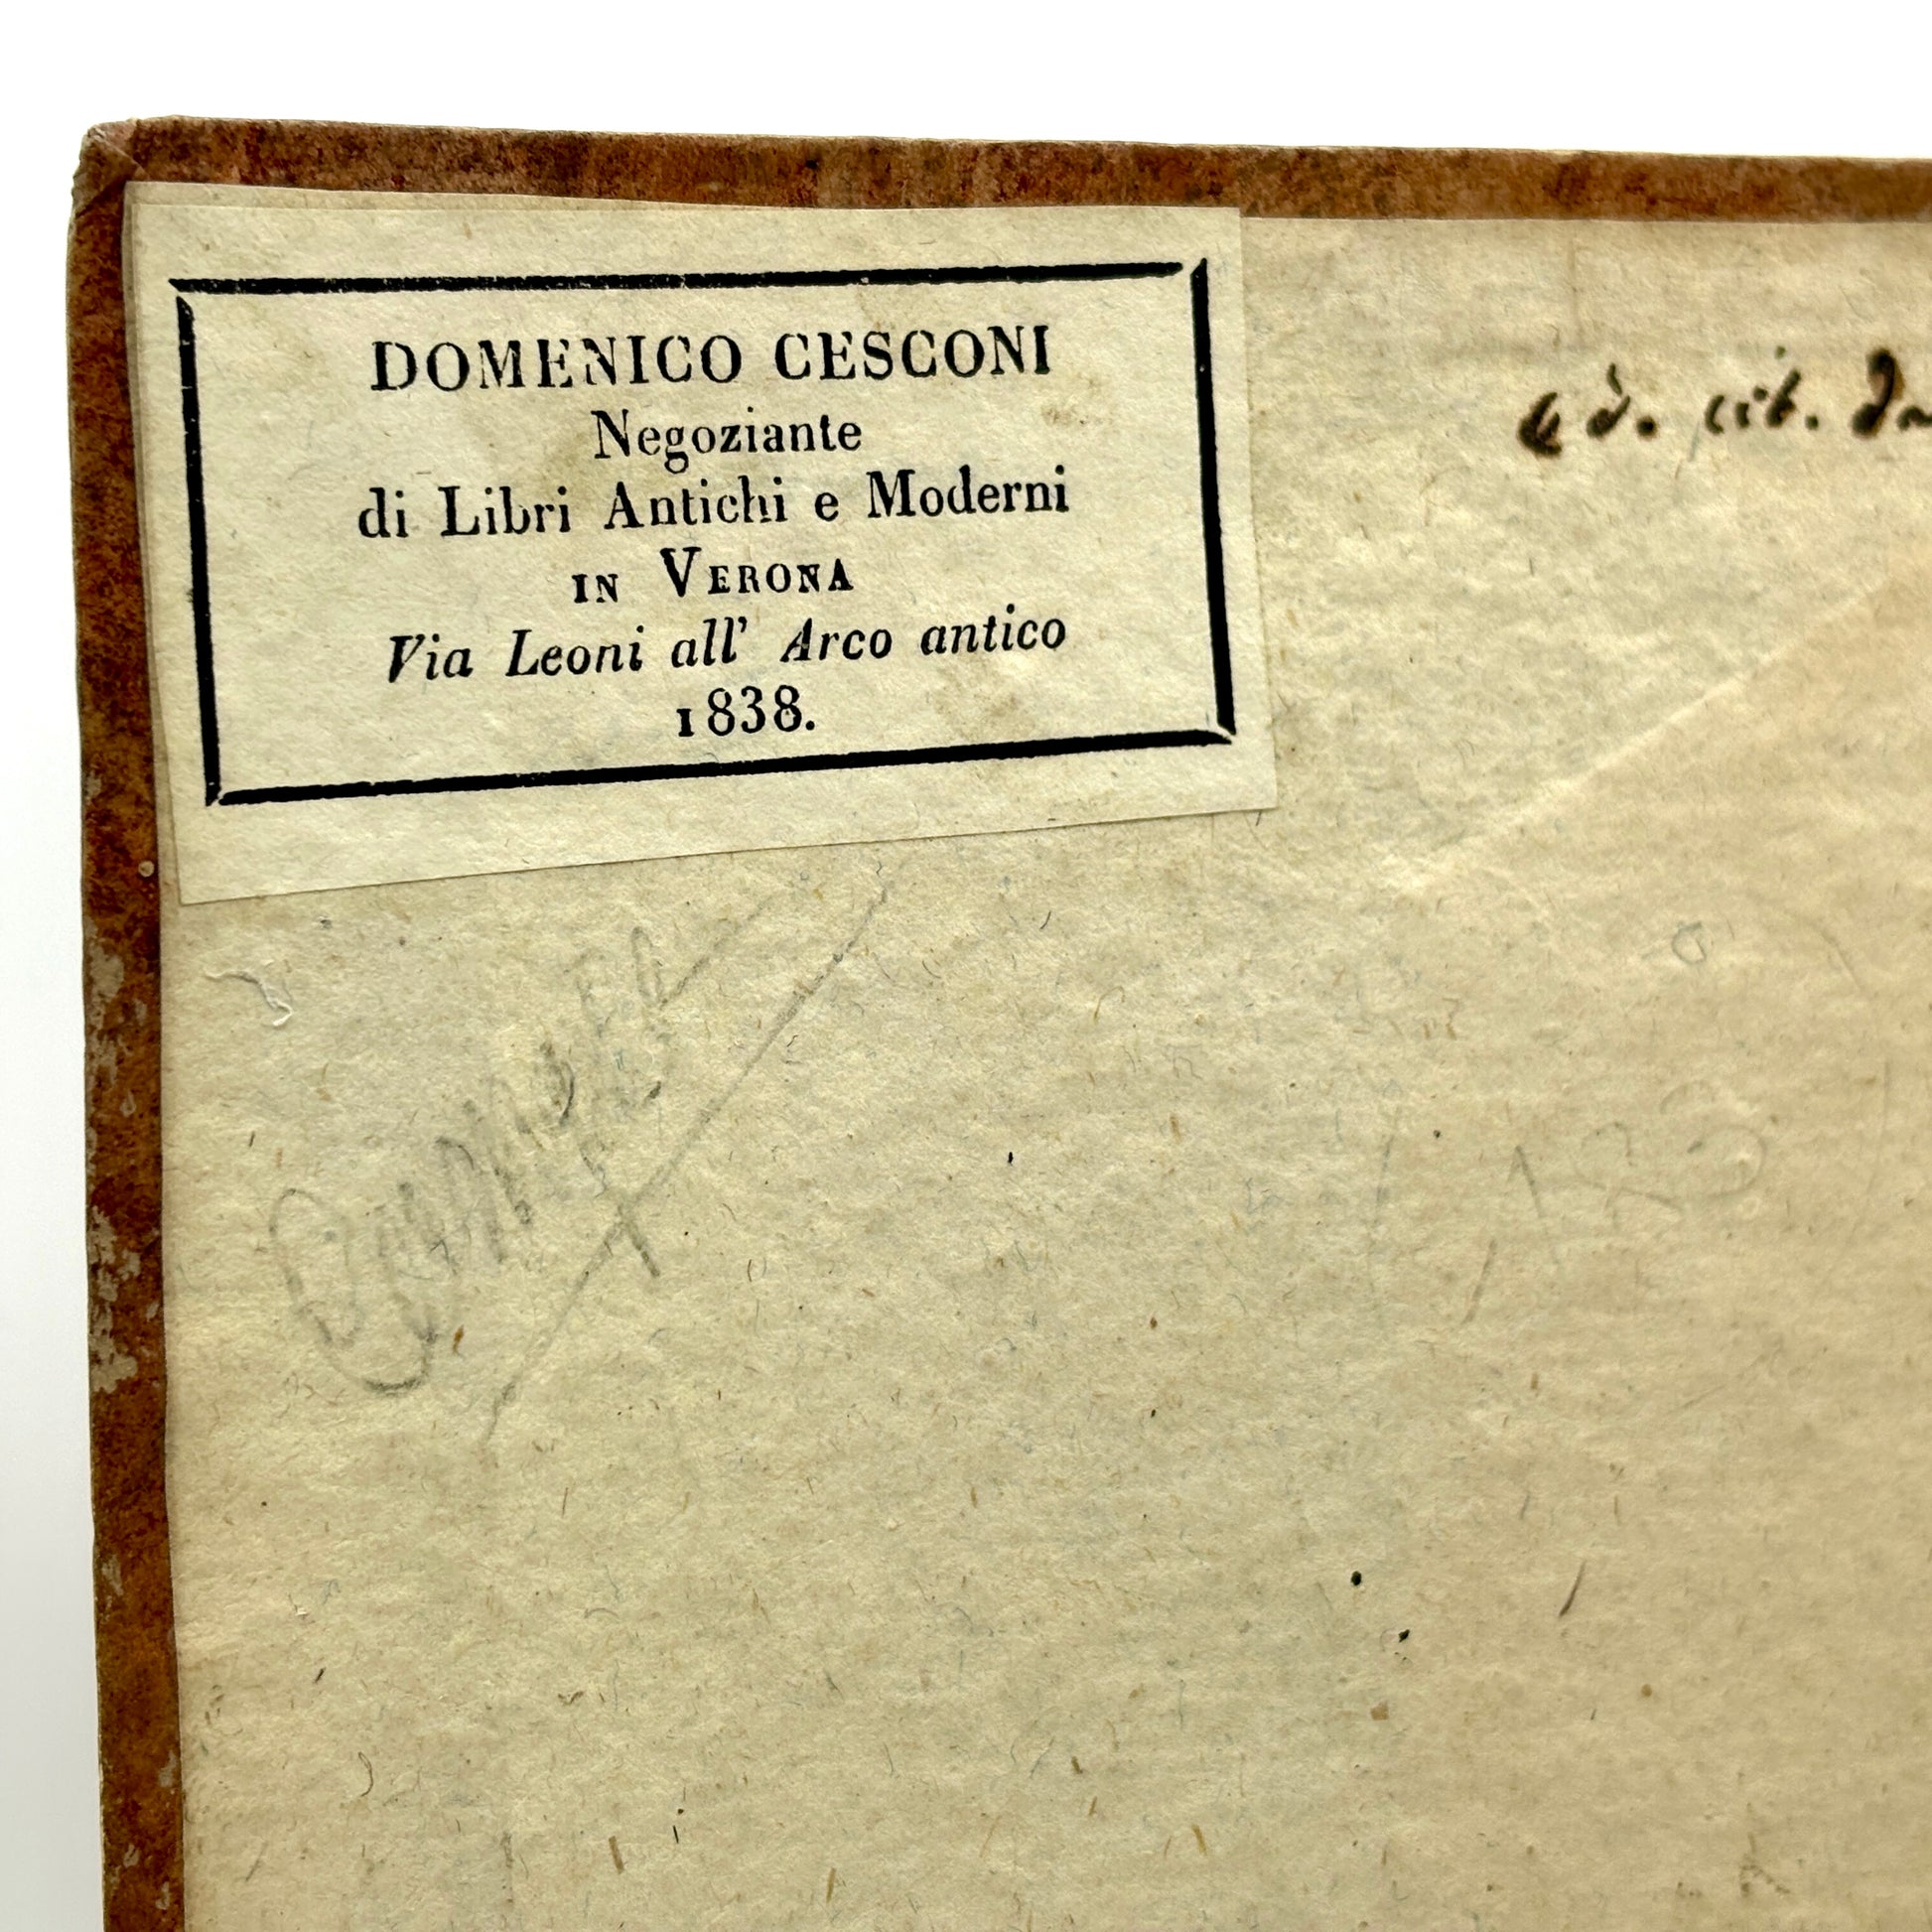 DOMENICO CESCONI
Negoziante
di Libri Antichi e Moderni
IN VERONA
Via Leoni all' Arco antico
1838.
ed. cit. da